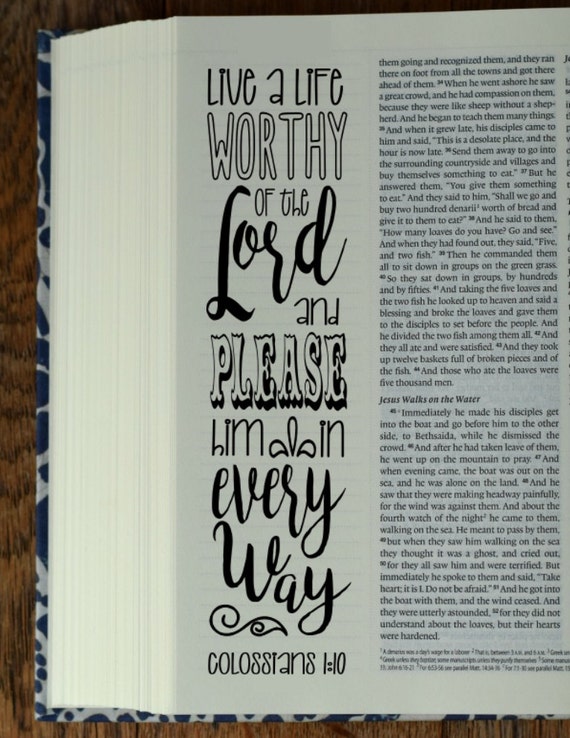 Live a Life
WORTHY
of the
Lord
and
PLEASE
him in
every
Way
COLOSSIANS 1:10
them going and recognized them, and they ran
there on foot from all the towns and got there
ahead of them. 34 When he went ashore he saw
a great crowd, and he had compassion on them,
because they were like sheep without a shep-
herd. And he began to teach them many things.
35 And when it grew late, his disciples came to
him and said, "This is a desolate place, and the
hour is now late. 36 Send them away to go into
the surrounding countryside and villages and
buy themselves something to eat." 37 But he
answered them, "You give them something
to eat." And they said to him, "Shall we go and
buy two hundred denarii1 worth of bread and
give it to them to eat?" 38 And he said to them,
"How many loaves do you have? Go and see."
And when they had found out, they said, "Five,
and two fish." 39 Then he commanded them
all to sit down in groups on the green grass.
40 So they sat down in groups, by hundreds
and by fifties. 41 And taking the five loaves and
the two fish he looked up to heaven and said a
blessing and broke the loaves and gave them
to the disciples to set before the people. And
he divided the two fish among them all. 42 And
they all ate and were satisfied. 43 And they took
up twelve baskets full of broken pieces and of
the fish. 44 And those who ate the loaves were
five thousand men.
Jesus Walks on the Water
45 Immediately he made his disciples get
into the boat and go before him to the other
side, to Bethsaida, while he dismissed the
crowd. 46 And after he had taken leave of them,
he went up on the mountain to pray. 47 And
when evening came, the boat was out on the
sea, and he was alone on the land. 48 And he
saw that they were making headway painfully,
for the wind was against them. And about the
fourth watch of the night2 he came to them,
walking on the sea. He meant to pass by them,
49 but when they saw him walking on the sea
they thought it was a ghost, and cried out,
50 for they all saw him and were terrified. But
immediately he spoke to them and said, "Take
heart; it is I. Do not be afraid." 51 And he got into
the boat with them, and the wind ceased. And
they were utterly astounded, 52 for they did not
understand about the loaves, but their hearts
were hardened.
1 A denarius was a day's wage for a laborer 2 That is, between 3 A.M. and 6 A.M. 3 Greek
4 Greek unless they baptize; some manuscripts unless they purify themselves 5 Some